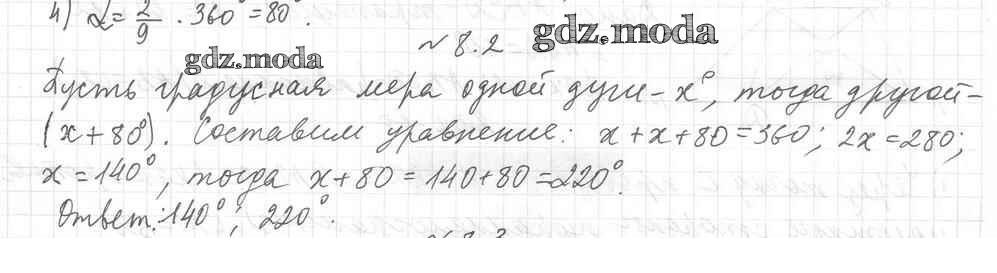 4) α = 2/9 · 360° = 80°.
№ 8.2 gdz.moda
gdz.moda
Пусть градусная мера одной дуги - x°, тогда другой -
(x + 80°). Составим уравнение: x + x + 80 = 360; 2x = 280;
x = 140°, тогда x + 80 = 140 + 80 = 220°.
Ответ: 140°; 220°.